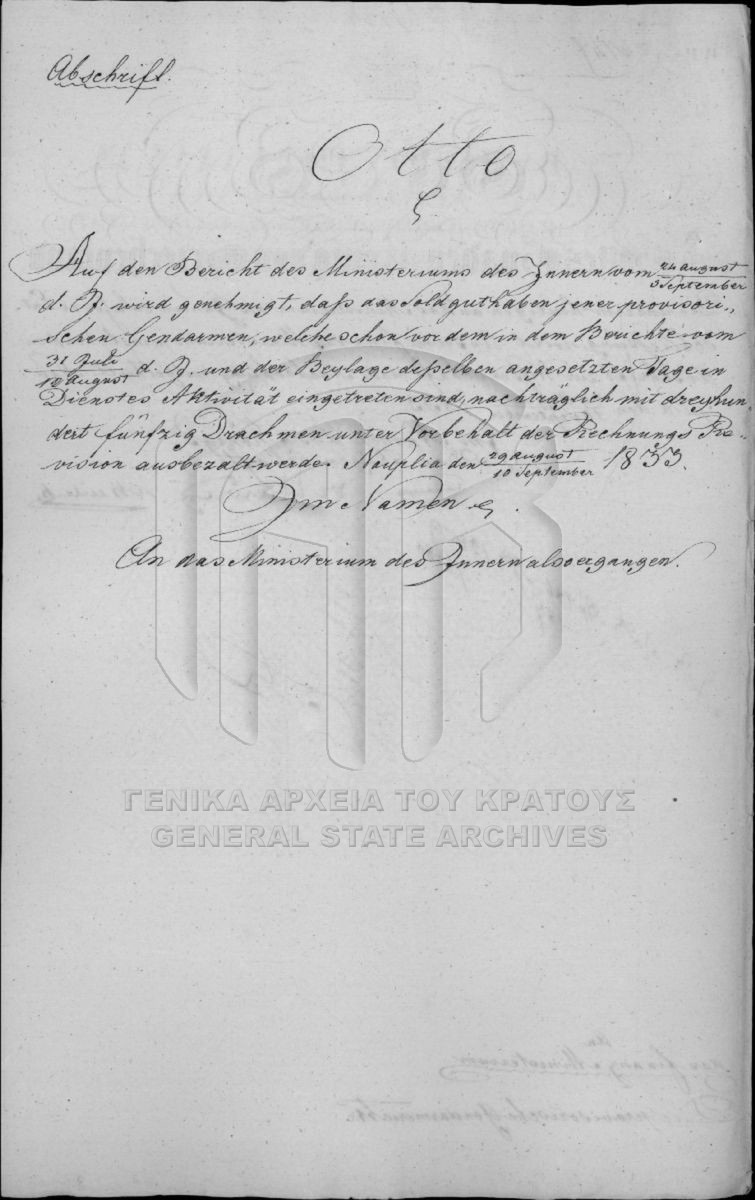 Abschrift.
Otto
Auf den Bericht des Ministeriums des Innern vom 24 August / 5 September
d. J. wird genehmigt, daß das Soldguthaben jener provisori„
schen Gendarmen, welche schon vor dem in dem Berichte vom
31 Juli / 12 August d. J. und der Beylage desselben angesetzten Tage in
Dienstes Aktivität eingetreten sind, nachträglich mit dreyhun„
dert fünfzig Drachmen unter Vorbehalt der Rechnungs Re„
vision ausbezalt werde. Nauplia den 29 August / 10 September 1833.
Im Namen
An das Ministerium des Innern also ergangen.
ΓΕΝΙΚΑ ΑΡΧΕΙΑ ΤΟΥ ΚΡΑΤΟΥΣ
GENERAL STATE ARCHIVES